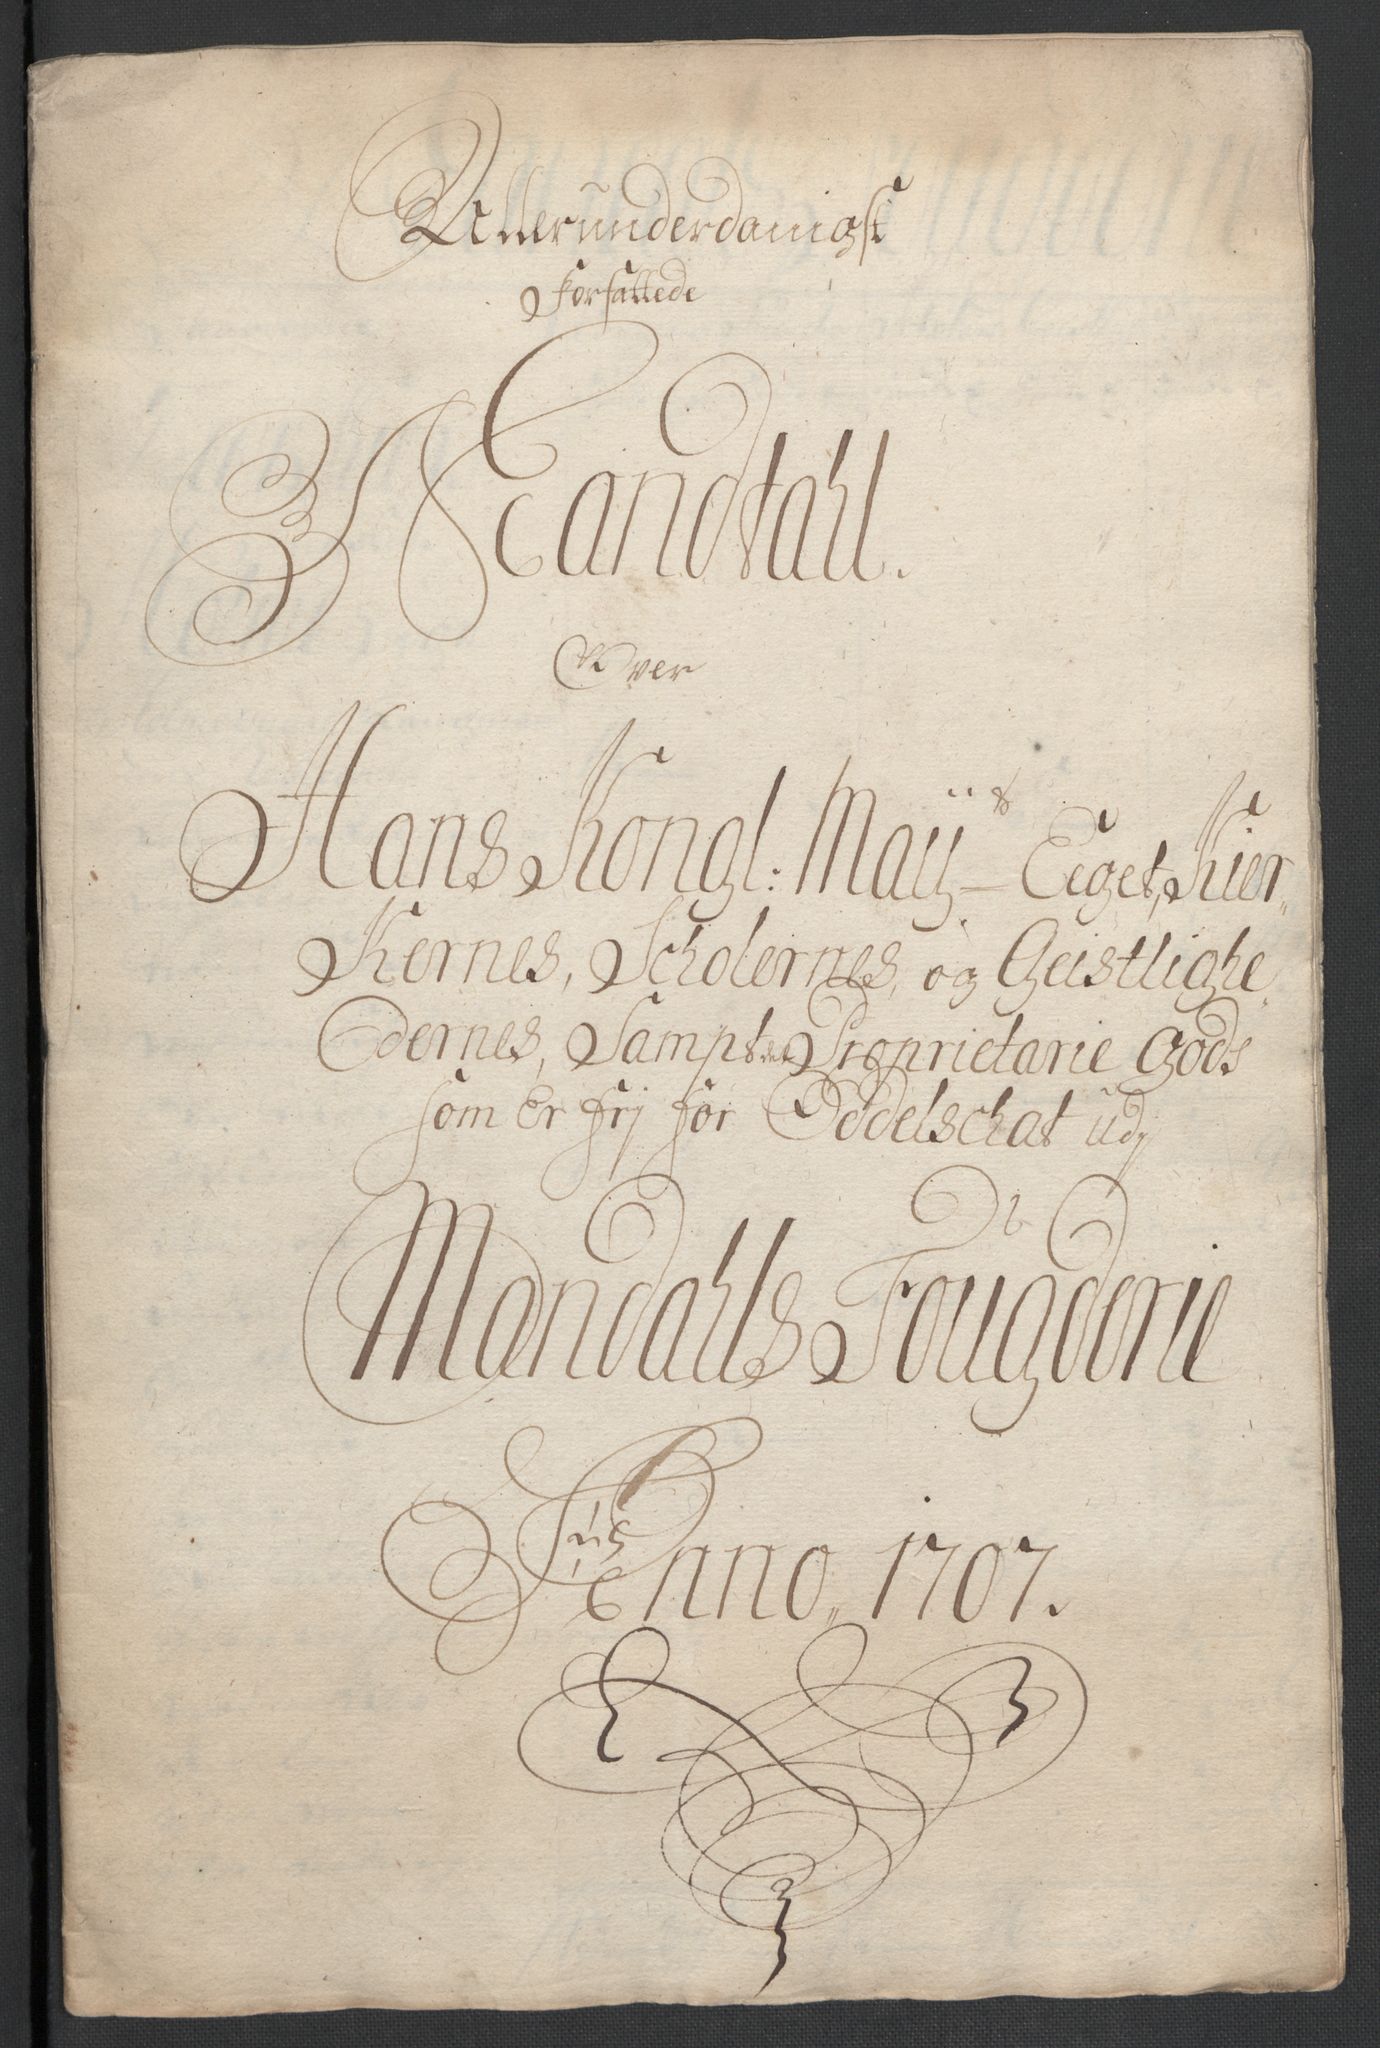 Allerunderdanigst
Forfattede
Mandtahl.
Over
Hans Kongl: Maÿts Eiget, Kier„
Kernes, Scholernes, og Geistlighe„
dernes, Sampt Proprietarie Gods
som Er frj for Oddelschat udj
Mandahls Fougderie
Anno„ 1707.